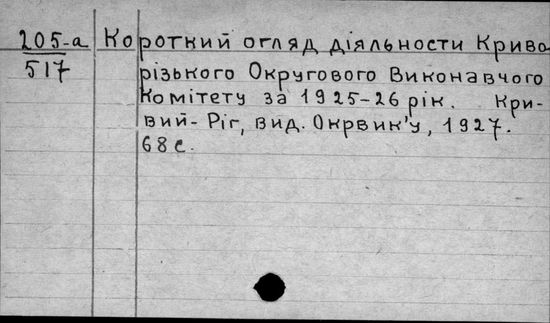 205-а Короткий огляд діяльности Криво
517 різького Округового Виконавчого
Комітету за 1925-26 рік. Кри-
вий-Ріг, вид. Окрвик'у, 1927.
68 с.